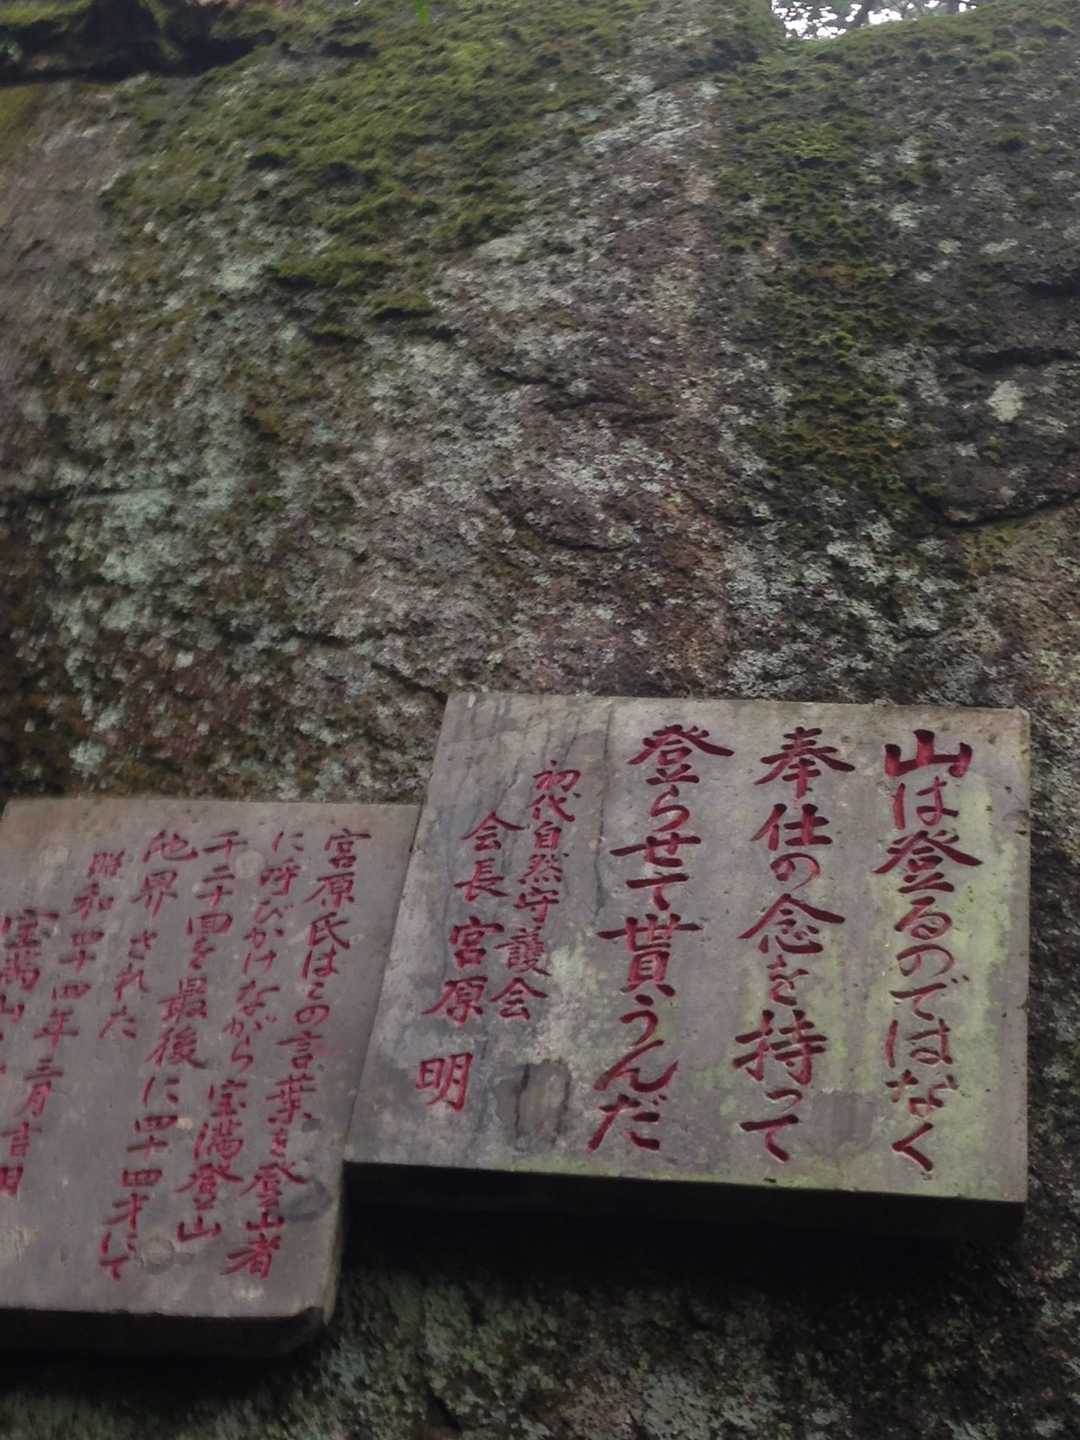 山は登るのではなく
奉仕の念を持って
登らせて貰うんだ
初代自然守護会
会長 宮原 明
宮原氏はこの言葉を登山者
に呼びかけながら宝満登山
千二十回を最後に四十四才にて
他界された
昭和四十四年三月吉日
宝満山